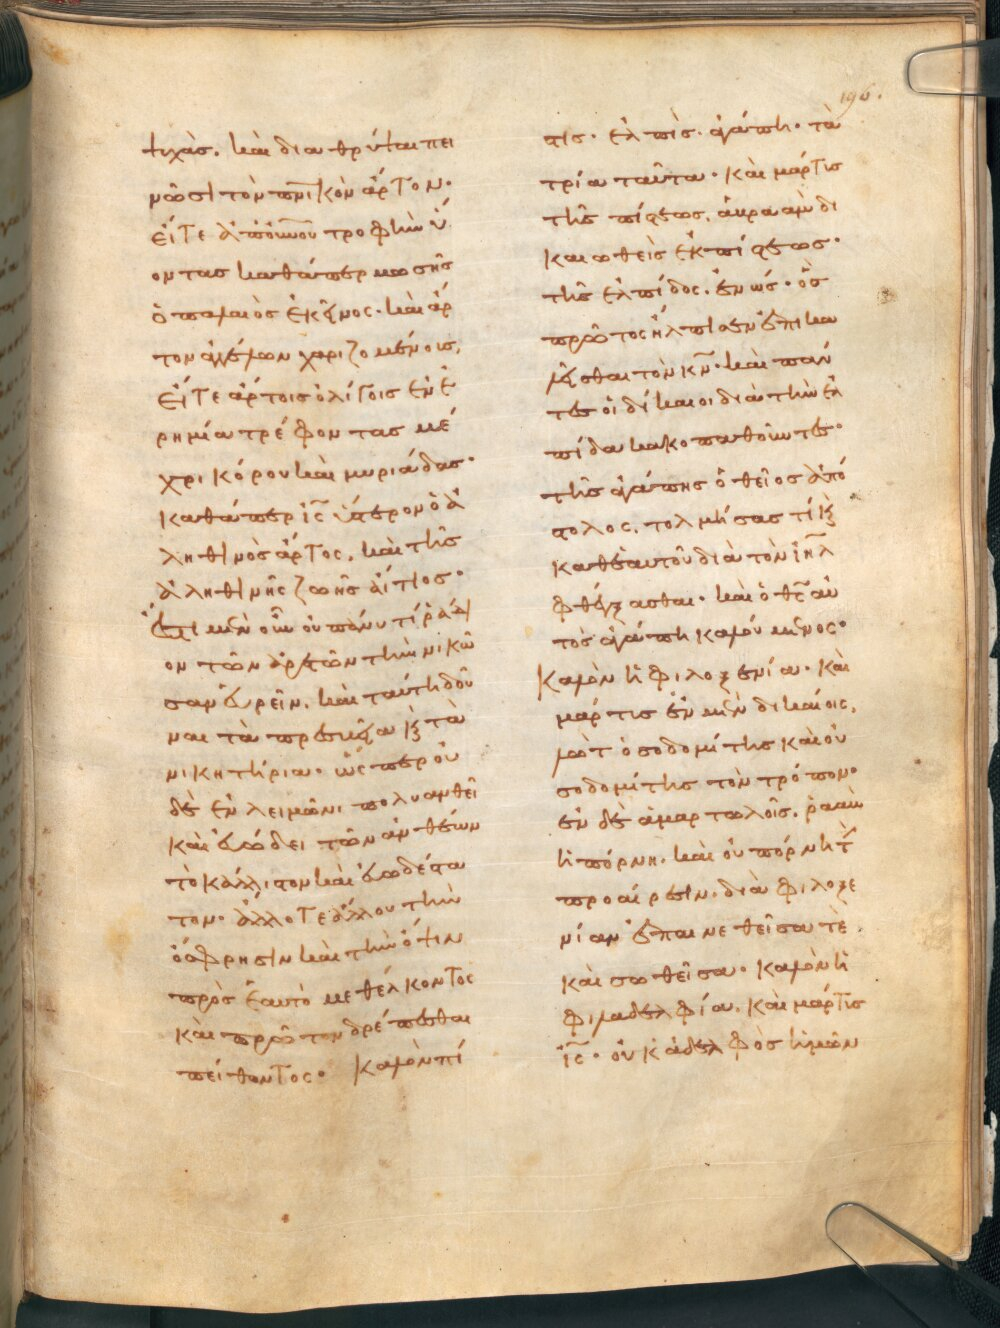 ψυχὰς, καὶ διαθρύπτεται πει
νῶσι τὸν πν̅ικὸν ἄρτον·
εἴτε ἀπ' οὐν̅ου τροφὴν ὕ
οντας καθάπερ μωσῆς
ὁ παλαιὸς ἐκεῖνος· καὶ ἄρ
τον ἀγγέλων χαριζομένοις,
εἴτε ἄρτοις ὀλίγοις ἐν ἐ
ρημία τρέφοντας μέ
χρι κόρου καὶ μυριάδας·
καθάπερ ι̅ς̅ ὕστερον ὁ ἀ
ληθινὸς ἄρτος, καὶ τῆς
ἀληθινῆς ζωῆς αἴτιος·
Ἔστι μὲν οὖν οὐ πάνυ τί ῥάδι
ον τῶν ἀρετῶν τὴν νικῶ
σαν εὑρεῖν, καὶ ταύτη δοῦ
ναι τὰ πρεσβεῖα κ̀ τὰ
νικητήρια· ὥσπερ οὐ
δὲ ἐν λειμῶνι πολυανθεῖ
καὶ εὐώδει τῶν ἀνθέων
τὸ κάλλιστον καὶ εὐωδέστα
τον· ἄλλοτε ἄλλου τὴν
ὄσφρησιν καὶ τὴν ὄψιν
πρὸς ἑαυτὸ μεθέλκοντος
καὶ πρῶτον δρέπεσθαι
πείθοντος· Καλὸν πί
στις· ἐλπὶς· ἀγάπη· τὰ
τρία ταῦτα· καὶ μάρτυς
τῆς πίστεως, ἁβραὰμ δι
καιωθεὶς ἐκ πίστεως·
τῆς ἐλπίδος, ἐνώς· ὃς
πρῶτος ἤλπισεν ἐπικα
λεῖσθαι τὸν κ̅ν̅· καὶ πάν
τες οἱ δίκαιοι διὰ τὴν ἐλ
πίδα κακοπαθοῦντες·
τῆς ἀγάπης ὁ θεῖος ἀπό
στολος, τολμήσας τί κ̀
καθ' ἑαυτοῦ διὰ τὸν ι̅η̅λ̅
φθέγξασθαι· καὶ ὁ θ̅ς̅ αὐ
τὸς ἀγάπη καλούμενος·
Καλὸν ἡ φιλοξενία· καὶ
μάρτυς ἐν μὲν δικαίοις,
λὼτ ὁ σοδομίτης καὶ οὐ
σοδομίτης τὸν τρόπον·
ἐν δὲ ἁμαρτωλοῖς, ῥαὰβ
ἡ πόρνη, καὶ οὐ πόρνη τ̀
προαίρεσιν, διὰ φιλοξε
νίαν ἐπαινεθεῖσα τὲ
καὶ σωθεῖσα· καλὸν ἡ
φιλαδελφία, καὶ μάρτυς
ι̅ς̅· οὐκ ἀδελφὸς ἡμῶν